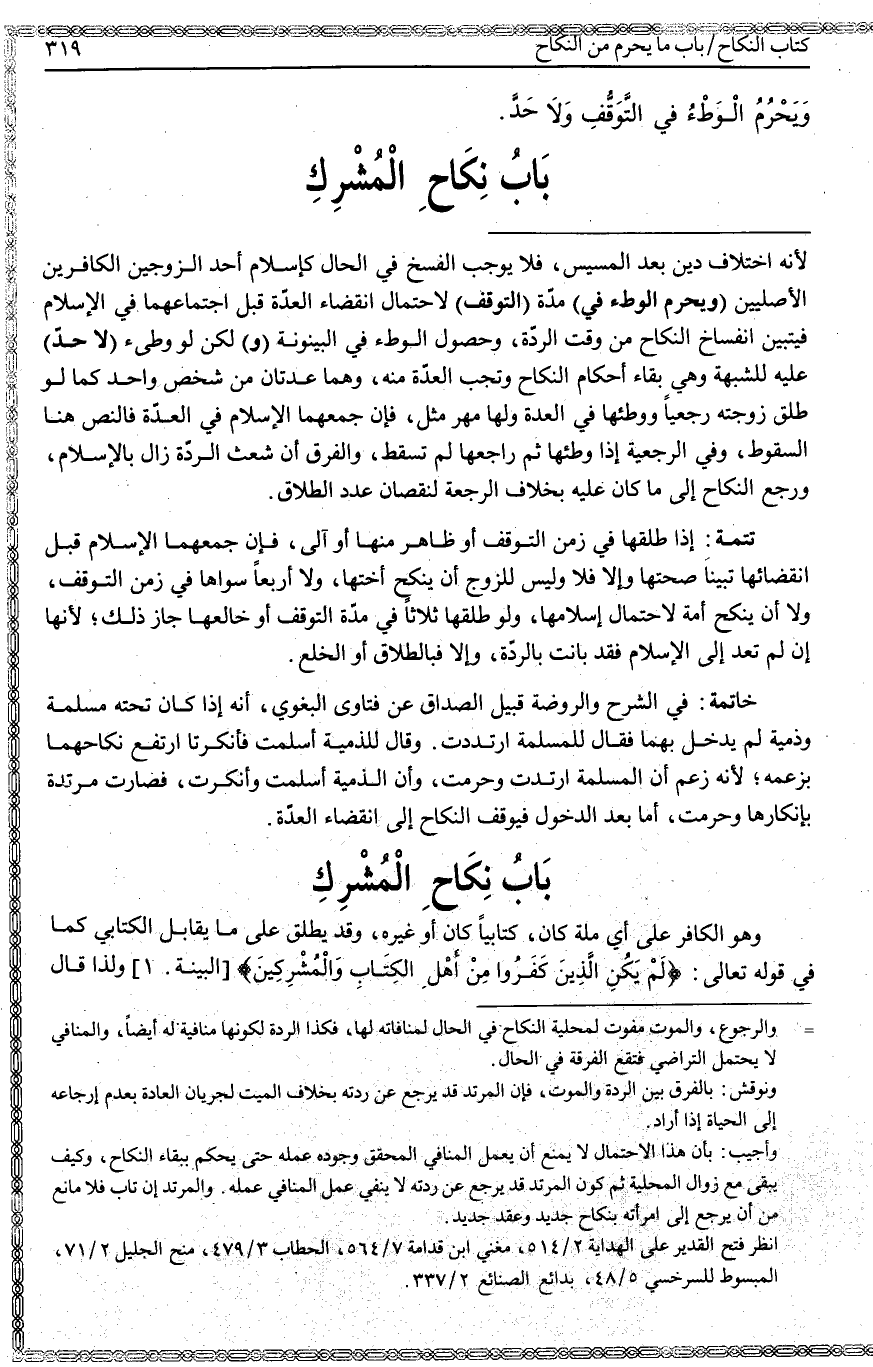 كتاب النكاح/باب ما يحرم من النكاح
٣١٩
وَيَحْرُمُ الْوَطْءُ في التَّوَقُّفِ وَلَا حَدَّ.
بَابُ نِكَاحِ الْمُشْرِكِ
لأنه اختلاف دين بعد المسيس، فلا يوجب الفسخ في الحال كإسلام أحد الزوجين الكافرين
الأصليين (ويحرم الوطء في) مدّة (التوقف) لاحتمال انقضاء العدّة قبل اجتماعهما في الإسلام
فيتبين انفساخ النكاح من وقت الردّة، وحصول الوطء في البينونة (و) لكن لو وطىء (لا حدّ)
عليه للشبهة وهي بقاء أحكام النكاح وتجب العدّة منه، وهما عدتان من شخص واحد كما لو
طلق زوجته رجعياً ووطئها في العدة ولها مهر مثل، فإن جمعهما الإسلام في العدّة فالنص هنا
السقوط، وفي الرجعية إذا وطئها ثم راجعها لم تسقط، والفرق أن شعث الردّة زال بالإسلام،
ورجع النكاح إلى ما كان عليه بخلاف الرجعة لنقصان عدد الطلاق.
تتمة: إذا طلقها في زمن التوقف أو ظاهر منها أو آلى، فإن جمعهما الإسلام قبل
انقضائها تبينا صحتها وإلا فلا وليس للزوج أن ينكح أختها، ولا أربعاً سواها في زمن التوقف،
ولا أن ينكح أمة لاحتمال إسلامها، ولو طلقها ثلاثاً في مدّة التوقف أو خالعها جاز ذلك؛ لأنها
إن لم تعد إلى الإسلام فقد بانت بالردّة، وإلا فبالطلاق أو الخلع.
خاتمة: في الشرح والروضة قبيل الصداق عن فتاوى البغوي، أنه إذا كان تحته مسلمة
وذمية لم يدخل بهما فقال للمسلمة ارتددت. وقال للذمية أسلمت فأنكرتا ارتفع نكاحهما
بزعمه؛ لأنه زعم أن المسلمة ارتدت وحرمت، وأن الذمية أسلمت وأنكرت، فصارت مرتدة
بإنكارها وحرمت، أما بعد الدخول فيوقف النكاح إلى انقضاء العدّة.
بَابُ نِكَاحِ الْمُشْرِكِ
وهو الكافر على أي ملة كان، كتابياً كان أو غيره، وقد يطلق على ما يقابل الكتابي كما
في قوله تعالى: ﴿لَمْ يَكُنِ الَّذِينَ كَفَرُوا مِنْ أَهْلِ الكِتَابِ وَالْمُشْرِكِينَ﴾ [البينة. ١] ولذا قال
= والرجوع، والموت مفوت لمحلية النكاح في الحال لمنافاته لها، فكذا الردة لكونها منافية له أيضاً، والمنافي
لا يحتمل التراضي فتقع الفرقة في الحال.
ونوقش: بالفرق بين الردة والموت، فإن المرتد قد يرجع عن ردته بخلاف الميت لجريان العادة بعدم إرجاعه
إلى الحياة إذا أراد.
وأجيب: بأن هذا الاحتمال لا يمنع أن يعمل المنافي المحقق وجوده عمله حتى يحكم ببقاء النكاح، وكيف
يبقى مع زوال المحلية ثم كون المرتد قد يرجع عن ردته لا ينفي عمل المنافي عمله. والمرتد إن تاب فلا مانع
من أن يرجع إلى امرأته بنكاح جديد وعقد جديد.
انظر فتح القدير على الهداية ٥١٤/٢، مغني ابن قدامة ٥٦٤/٧، الحطاب ٤٧٩/٣، منح الجليل ٧١/٢،
المبسوط للسرخسي ٤٨/٥، بدائع الصنائع ٣٣٧/٢.